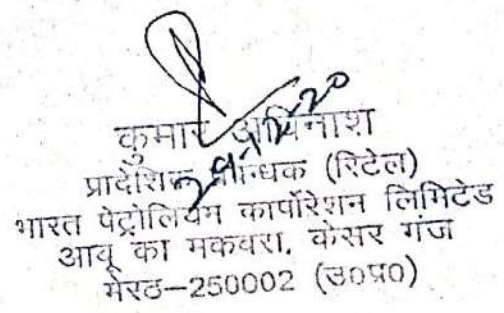 कुमार अविनाश
प्रादेशिक प्रबन्धक (रिटेल)
भारत पेट्रोलियम कार्पोरेशन लिमिटेड
आबू का मकबरा, केसर गंज
मेरठ-250002 (उ०प्र०)